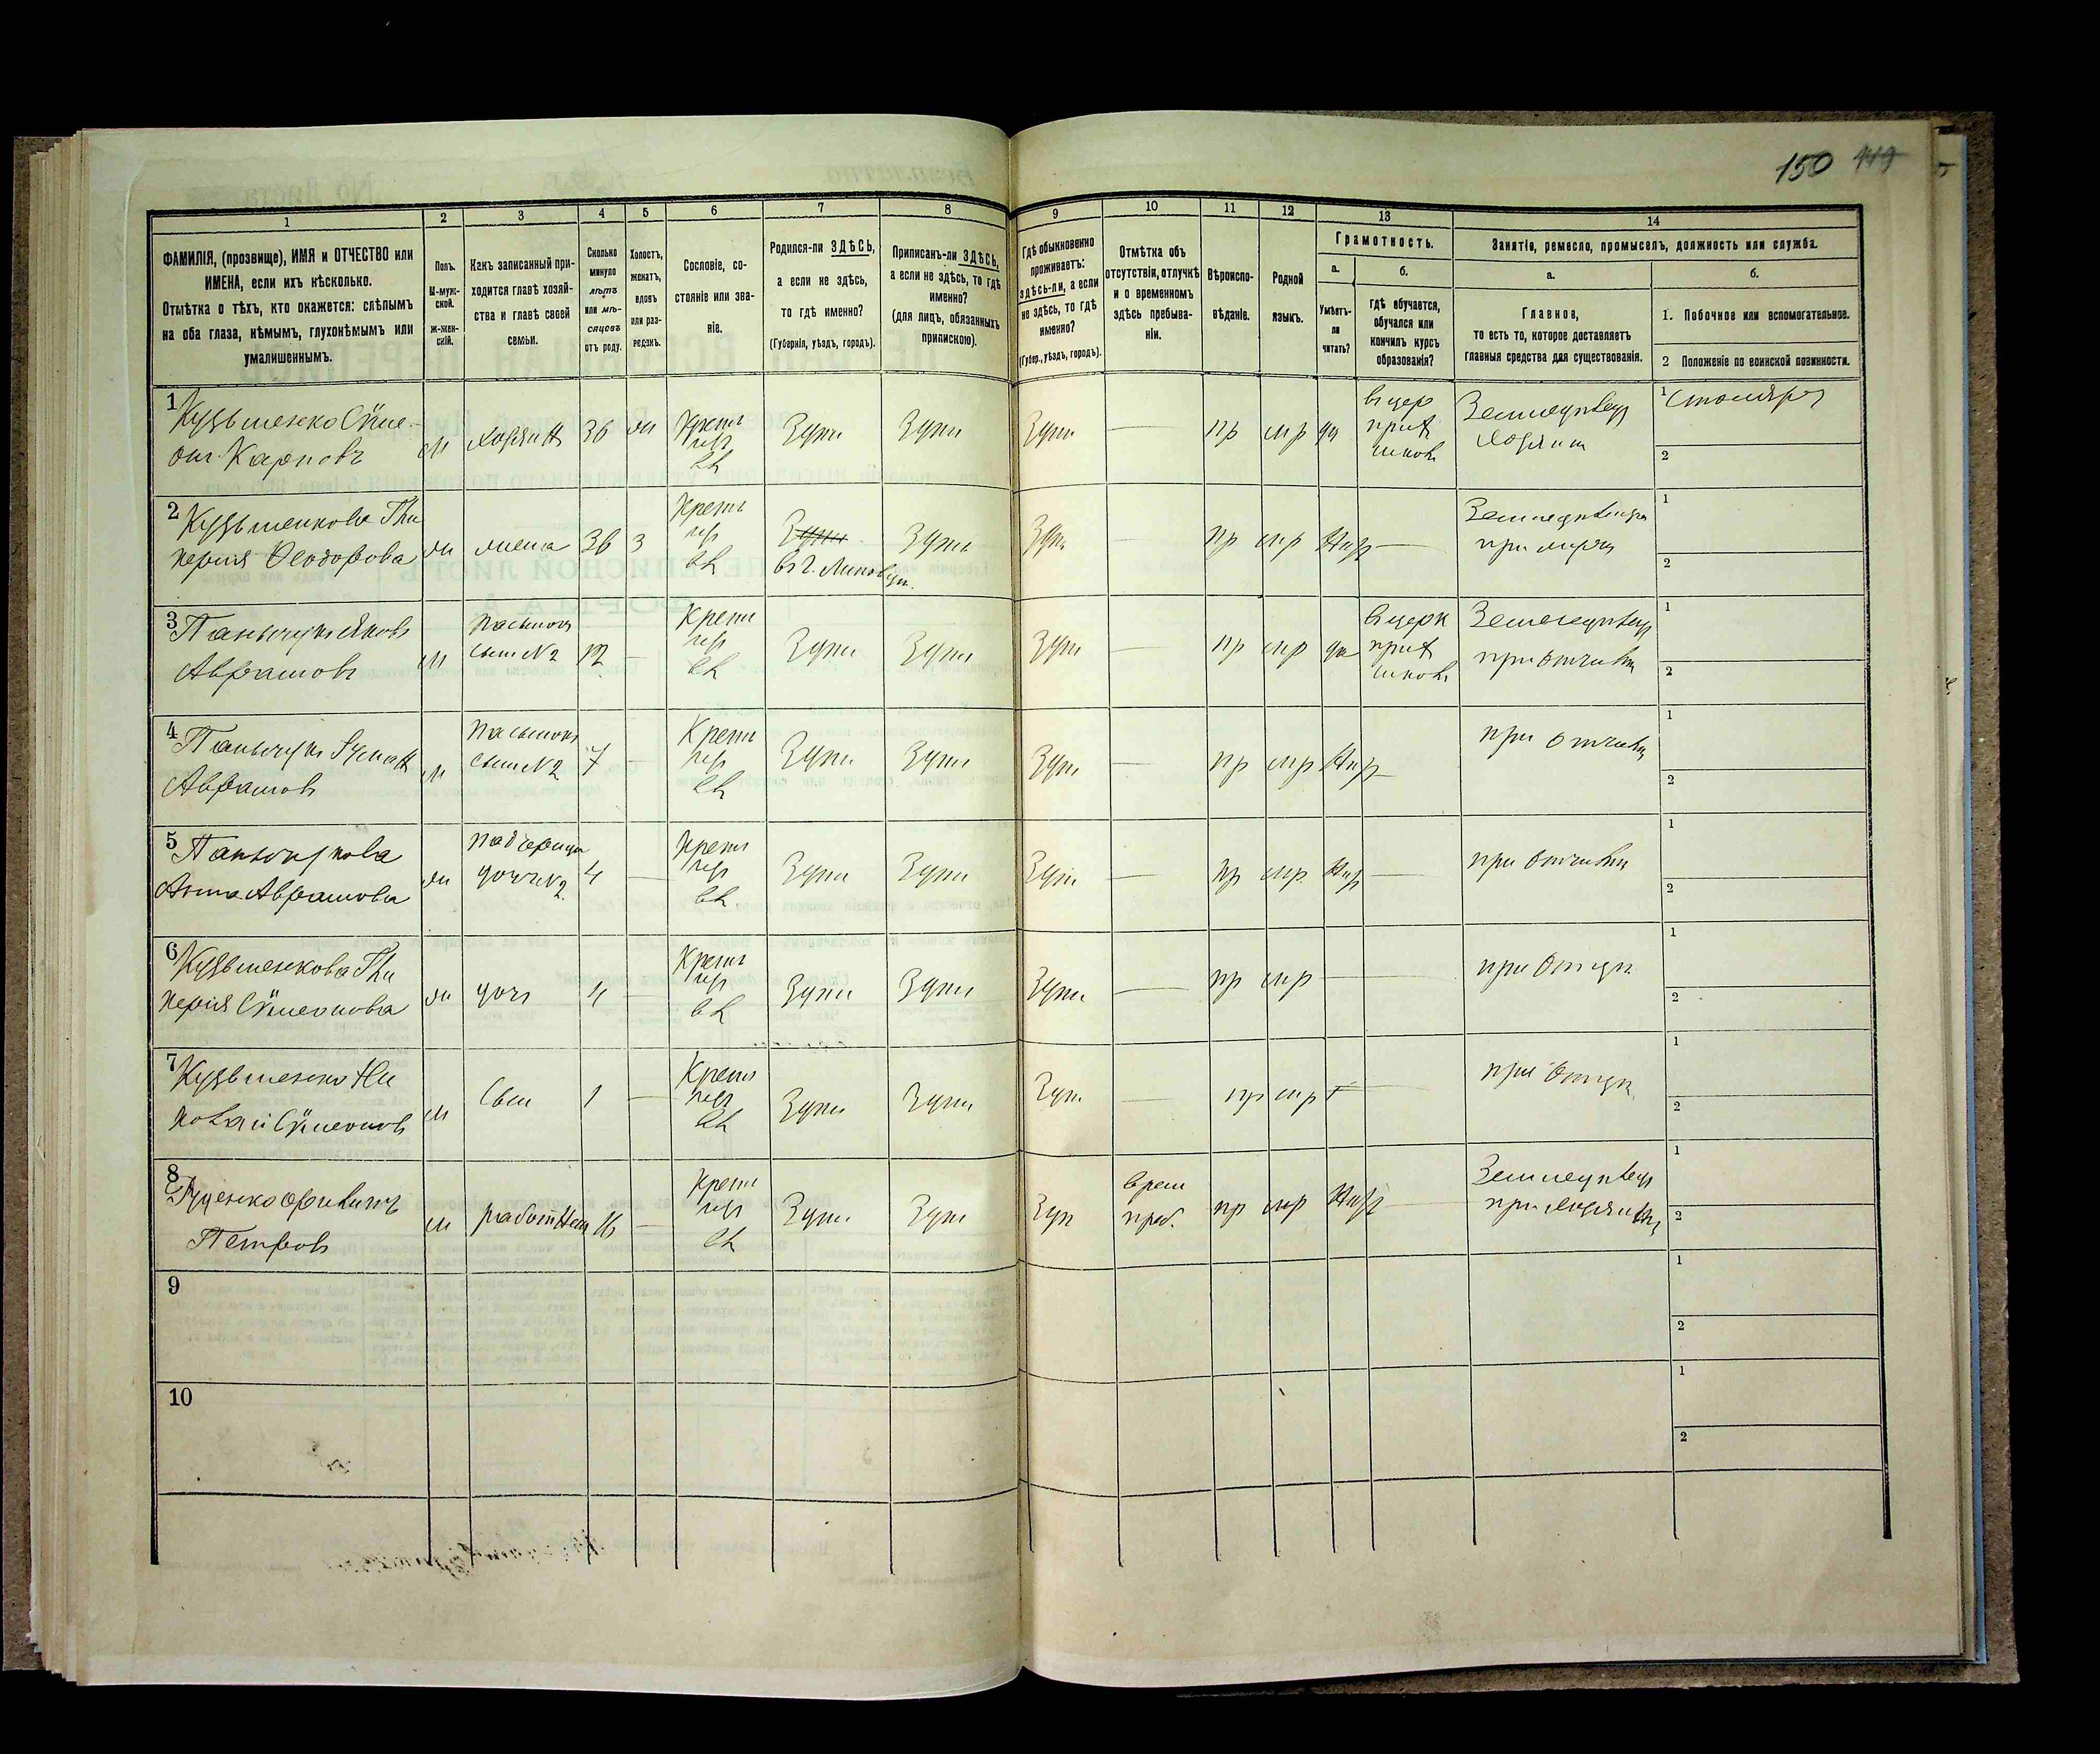 150 149
1 2 3 4 5 6 7 8 9 10 11 12 13 14
ФАМИЛІЯ, (прозвище), ИМЯ и ОТЧЕСТВО или
ИМЕНА, если ихъ нѣсколько.
Отмѣтка о тѣхъ, кто окажется: слѣпымъ
на оба глаза, нѣмымъ, глухонѣмымъ или
умалишеннымъ.
Полъ.
М-муж-
ской.
Ж-жен-
скій.
Какъ записанный при-
ходится главѣ хозяй-
ства и главѣ своей
семьи.
Сколько
минуло
лѣтъ
или мѣ-
сяцевъ
отъ роду.
Холостъ,
женатъ,
вдовъ
или раз-
веденъ.
Сословіе, со-
стояніе или зва-
ніе.
Родился-ли ЗДѢСЬ,
а если не здѣсь,
то гдѣ именно?
(Губернія, уѣздъ, городъ).
Приписанъ-ли ЗДѢСЬ,
а если не здѣсь, то гдѣ
именно?
(для лицъ, обязанныхъ
припискою).
Гдѣ обыкновенно
проживаетъ:
здѣсь-ли, а если
не здѣсь, то гдѣ
именно?
(Губер., уѣздъ, городъ).
Отмѣтка объ
отсутствіи, отлучкѣ
и о временномъ
здѣсь пребыва-
ніи.
Вѣроиспо-
вѣданіе.
Родной
языкъ.
Грамотность.
а. б.
Умѣетъ-
ли
читать?
гдѣ обучается,
обучался или
кончилъ курсъ
образованія?
Занятіе, ремесло, промыселъ, должность или служба.
а. б.
Главное,
то есть то, которое доставляетъ
главныя средства для существованія.
1. Побочное или вспомогательное.
2 Положеніе по воинской повинности.
1
Кузьменко Сѵме-
он Карповъ
м хозяин 36 ж Крестъ Здѣсь Здѣсь Здѣсь — пр мр да
в церк
прих
школѣ
Земледѣлецъ
хозяин
1 Столяръ
2
2
Кузьменкова Гли
керія Феодорова
ж жена 36 3 Крестъ Здѣсь Здѣсь Здѣсь — пр мр —
Земледѣлица
при мужѣ
1
2
3
Паньчукъ Яковъ
Аврамовъ
м пасынокъ
сынъ N2 12 — Крестъ Здѣсь Здѣсь Здѣсь — пр мр да
в церк
прих
школѣ
Земледѣлецъ
при отчимѣ
1
2
4
Аврамовъ
м пасынокъ
сынъ N2 7 — Крестъ Здѣсь Здѣсь Здѣсь — пр мр —
при отчимѣ
1
2
5
Анна Аврамова
ж падчерица
дочь N2 4 — Крестъ Здѣсь Здѣсь Здѣсь — пр мр —
при отчимѣ
1
2
6
Кузьменкова Гли
керія Сѵмеонова
ж дочь 4 — Крестъ Здѣсь Здѣсь Здѣсь — пр мр — —
при отцѣ
1
2
7
Кузьменко Ни
колай Сѵмеоновъ
м Сын 1 — Крестъ Здѣсь Здѣсь Здѣсь — пр мр — —
при отцѣ
1
2
8
Петровъ
м работник 16 — Крестъ Здѣсь Здѣсь Здѣсь
врем
преб.
пр мр —
Земледѣлецъ
при хозяинѣ
1
2
9
1
2
10
1
2